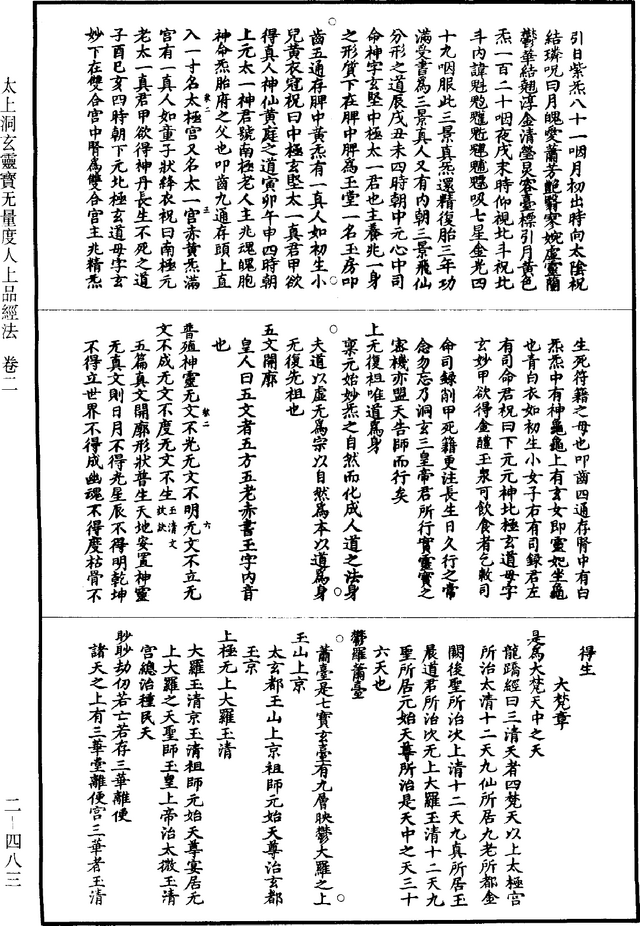 引日紫炁八十一咽月初出時向太陰祝
結璘呪曰月魄曖蕭芳艷翳寥婉虛靈蘭
鬱華結翹淳金清瑩炅容臺標引月黃色
炁一百二十咽夜戌未時仰視北斗祝北
斗內諱魁𩲃䰢魓䰡魒魒吸七星金光四
十九咽服此三景真炁還精復胎三年功
滿受書為三景真人又有內朝三景飛仙
分形之道辰戌丑未四時朝中元心中司
命神字玄堅中極太一君也主養兆一身
之形質下在脾中脾為玉堂一名玉房叩
齒五通存脾中黃炁有一真人如初生小
兒黃衣冠祝曰中極玄堅太一真君甲欲
得真人神仙黃庭之道寅卯午申四時朝
上元太一神君號南極老人主兆魂魄胞
神命炁胎府之父也叩齒九通存頭上直
入一寸名太極宮又名太一宮赤黃炁滿
宮有一真人如童子狀絳衣祝曰南極元
老太一真君甲欲得神丹長生不死之道
子酉巳亥四時朝下元北極玄道母字玄
妙下在雙合宮中腎為雙合宮主兆精炁
生死符籍之母也叩齒四通存腎中有白
炁炁中有神龜龜上有玄女即靈妃坐龜
也青白衣如初生小女子右有司錄君左
有司命君祝曰下元元神北極玄道母字
玄妙甲欲得金醴玉泉可飲食者乞敕司
命司錄削甲死籍更注長生日久行之常
念勿忘乃洞玄三皇帝君所行寶靈寶之
密機亦盟天告師而行矣
上无復祖唯道為身
稟元始妙炁之自然而化成人道之法身
夫道以虛无為宗以自然為本以道為身
无復先祖也
五文開廓
皇人曰五文者五方五老赤書玉字內音
也
普殖神靈无文不光无文不明无文不立无
文不成无文不度无文不生玉清文
五篇真文開廓形狀普生天地安置神靈
无真文則日月不得光星辰不得明乾坤
不得立世界不得成幽魂不得度枯骨不
得生
大梵章
是為大梵天中之天
龍蹻經曰三清天者四梵天以上太極宮
所治太清十二天九仙所居九老所都金
闕後聖所治次上清十二天九真所居玉
晨道君所治次无上大羅玉清十二天九
聖所居元始天尊所治是天中之天三十
六天也
鬱羅蕭臺
蕭臺是七寶玄臺有九層映鬱大羅之上
玉山上京
太玄都玉山上京祖師元始天尊治玄都
玉京
上極无上大羅玉清
大羅玉清京玉清祖師元始天尊宴居元
上大羅之天聖師玉皇上帝治太微玉清
宮總治種民天
眇眇劫仞若亡若存三華離便
諸天之上有三華堂離便宮三華者玉清
太上洞玄靈寶无量度人上品經法　卷二
二－四八三